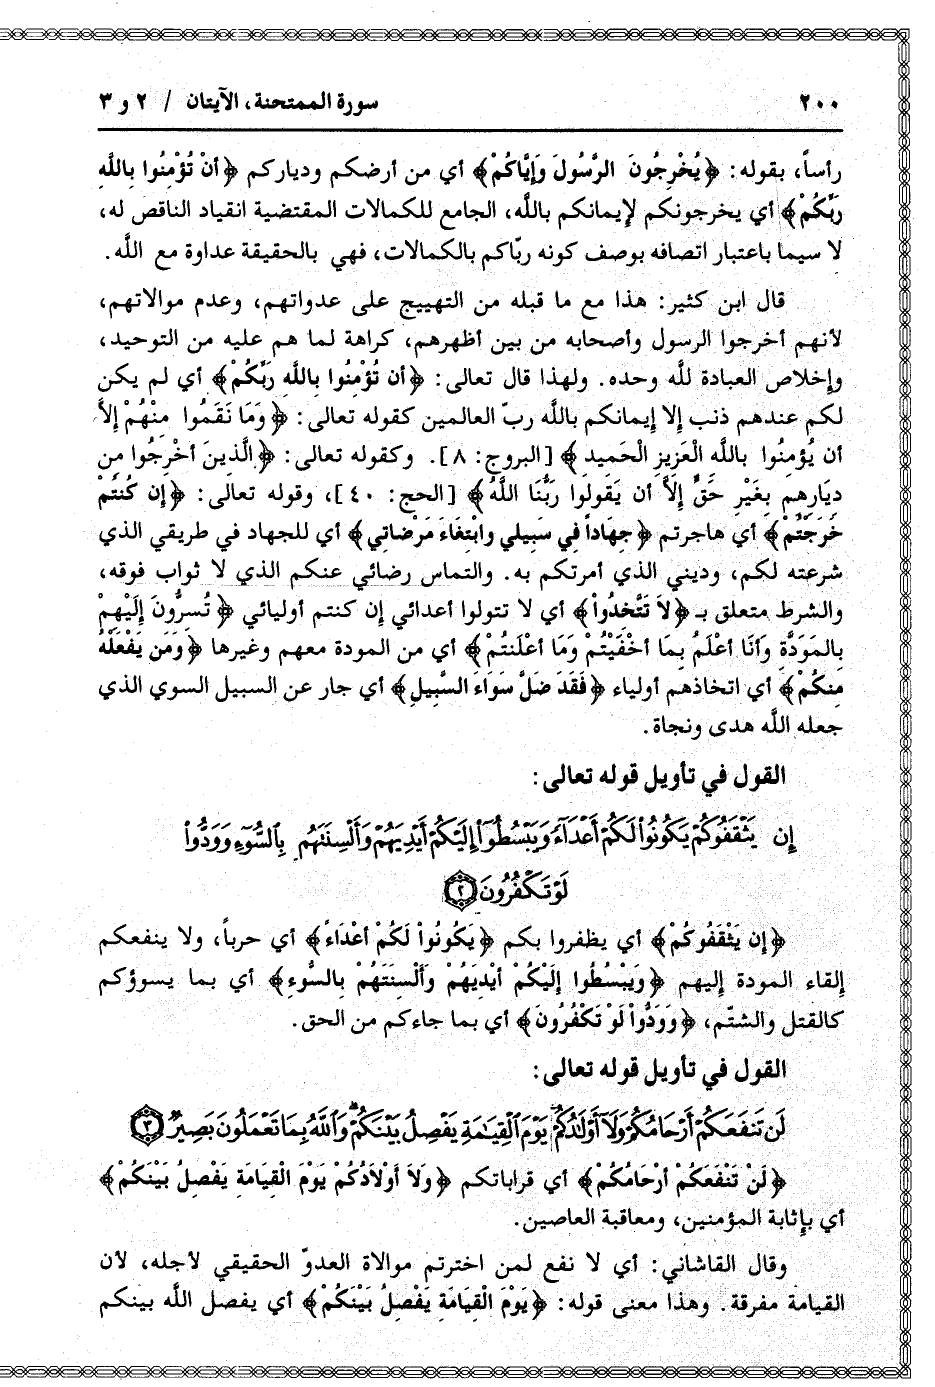 ٢٠٠ سورة الممتحنة، الآيتان / ٢ و ٣
رأساً، بقوله: ﴿يُخْرِجُونَ الرَّسُولَ وَإِيَّاكُمْ﴾ أي من أرضكم ودياركم ﴿أَنْ تُؤْمِنُوا بِاللَّهِ
رَبِّكُمْ﴾ أي يخرجونكم لإيمانكم باللَّه، الجامع للكمالات المقتضية انقياد الناقص له،
لا سيما باعتبار اتصافه بوصف كونه ربّاكم بالكمالات، فهي بالحقيقة عداوة مع اللَّه.
قال ابن كثير: هذا مع ما قبله من التهييج على عدواتهم، وعدم موالاتهم،
لأنهم أخرجوا الرسول وأصحابه من بين أظهرهم، كراهة لما هم عليه من التوحيد،
وإخلاص العبادة للَّه وحده. ولهذا قال تعالى: ﴿أن تُؤْمِنُوا بِاللَّهِ رَبِّكُمْ﴾ أي لم يكن
لكم عندهم ذنب إلا إيمانكم باللَّه ربّ العالمين كقوله تعالى: ﴿وَمَا نَقَمُوا مِنْهُمْ إِلاَّ
أن يُؤْمِنُوا بِاللَّهِ الْعَزِيزِ الْحَمِيدِ﴾ [البروج: ٨]. وكقوله تعالى: ﴿الَّذِينَ أُخْرِجُوا مِن
دِيَارِهِم بِغَيْرِ حَقٍّ إِلاَّ أن يَقُولُوا رَبُّنَا اللَّهُ﴾ [الحج: ٤٠]، وقوله تعالى: ﴿إِن كُنتُمْ
خَرَجْتُمْ﴾ أي هاجرتم ﴿جِهَاداً فِي سَبِيلي وابْتِغَاءَ مَرْضَاتِي﴾ أي للجهاد في طريقي الذي
شرعته لكم، وديني الذي أمرتكم به. والتماس رضائي عنكم الذي لا ثواب فوقه،
والشرط متعلق بـ ﴿لاَ تَتَّخِذُوا﴾ أي لا تتولوا أعدائي إن كنتم أوليائي ﴿تُسِرُّونَ إِلَيْهِمْ
بِالْمَوَدَّةِ وَأَنَا أَعْلَمُ بِمَا أَخْفَيْتُمْ وَمَا أَعْلَنتُمْ﴾ أي من المودة معهم وغيرها ﴿وَمَن يَفْعَلْهُ
مِنكُمْ﴾ أي اتخاذهم أولياء ﴿فَقَدَ ضَلَّ سَوَاءَ السَّبِيلِ﴾ أي جار عن السبيل السوي الذي
جعله اللَّه هدى ونجاة.
القول في تأويل قوله تعالى:
إِن يَثْقَفُوكُمْ يَكُونُوا۟ لَكُمْ أَعْدَآءً وَيَبْسُطُوٓا۟ إِلَيْكُمْ أَيْدِيَهُمْ وَأَلْسِنَتَهُم بِٱلسُّوٓءِ وَوَدُّوا۟
لَوْ تَكْفُرُونَ ﴿٢﴾
﴿إِن يَثْقَفُوكُمْ﴾ أي يظفروا بكم ﴿يَكُونُواْ لَكُمْ أَعْدَاءً﴾ أي حرباً، ولا ينفعكم
إلقاء المودة إليهم ﴿وَيَبْسُطُوا إِلَيْكُمْ أَيْدِيَهُمْ وَأَلْسِنَتَهُمْ بِالسُّوءِ﴾ أي بما يسوؤكم
كالقتل والشتّم، ﴿وَوَدُّواْ لَوْ تَكْفُرُونَ﴾ أي بما جاءكم من الحق.
القول في تأويل قوله تعالى:
لَن تَنفَعَكُمْ أَرْحَامُكُمْ وَلَآ أَوْلَٰدُكُمْ يَوْمَ ٱلْقِيَٰمَةِ يَفْصِلُ بَيْنَكُمْ وَٱللَّهُ بِمَا تَعْمَلُونَ بَصِيرٌ ﴿٣﴾
﴿لَنْ تَنْفَعَكُمْ أَرْحَامُكُمْ﴾ أي قراباتكم ﴿وَلاَ أَوْلاَدُكُمْ يَوْمَ الْقِيَامَةِ يَفْصِلُ بَيْنَكُمْ﴾
أي بإثابة المؤمنين، ومعاقبة العاصين.
وقال القاشاني: أي لا نفع لمن اخترتم موالاة العدوّ الحقيقي لأجله، لأن
القيامة مفرقة. وهذا معنى قوله: ﴿يَوْمَ الْقِيَامَةِ يَفْصِلُ بَيْنَكُمْ﴾ أي يفصل اللَّه بينكم